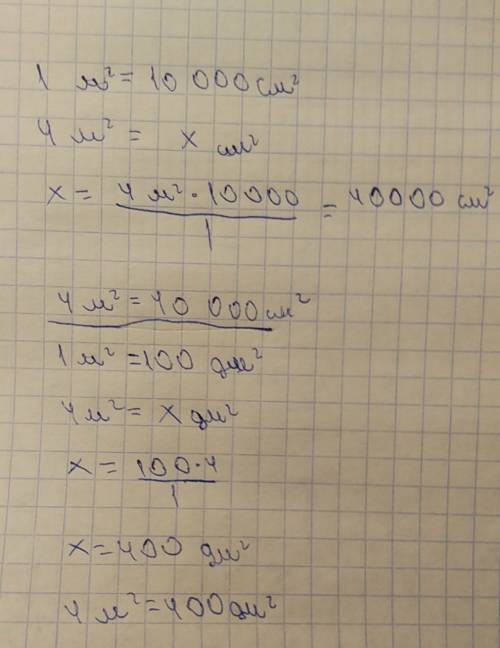 1 м² = 10 000 см²
4 м² = x см²
x = 4 м² · 10000 / 1 = 40000 см²
4 м² = 40 000 см²
1 м² = 100 дм²
4 м² = x дм²
x = 100 · 4 / 1
x = 400 дм²
4 м² = 400 дм²